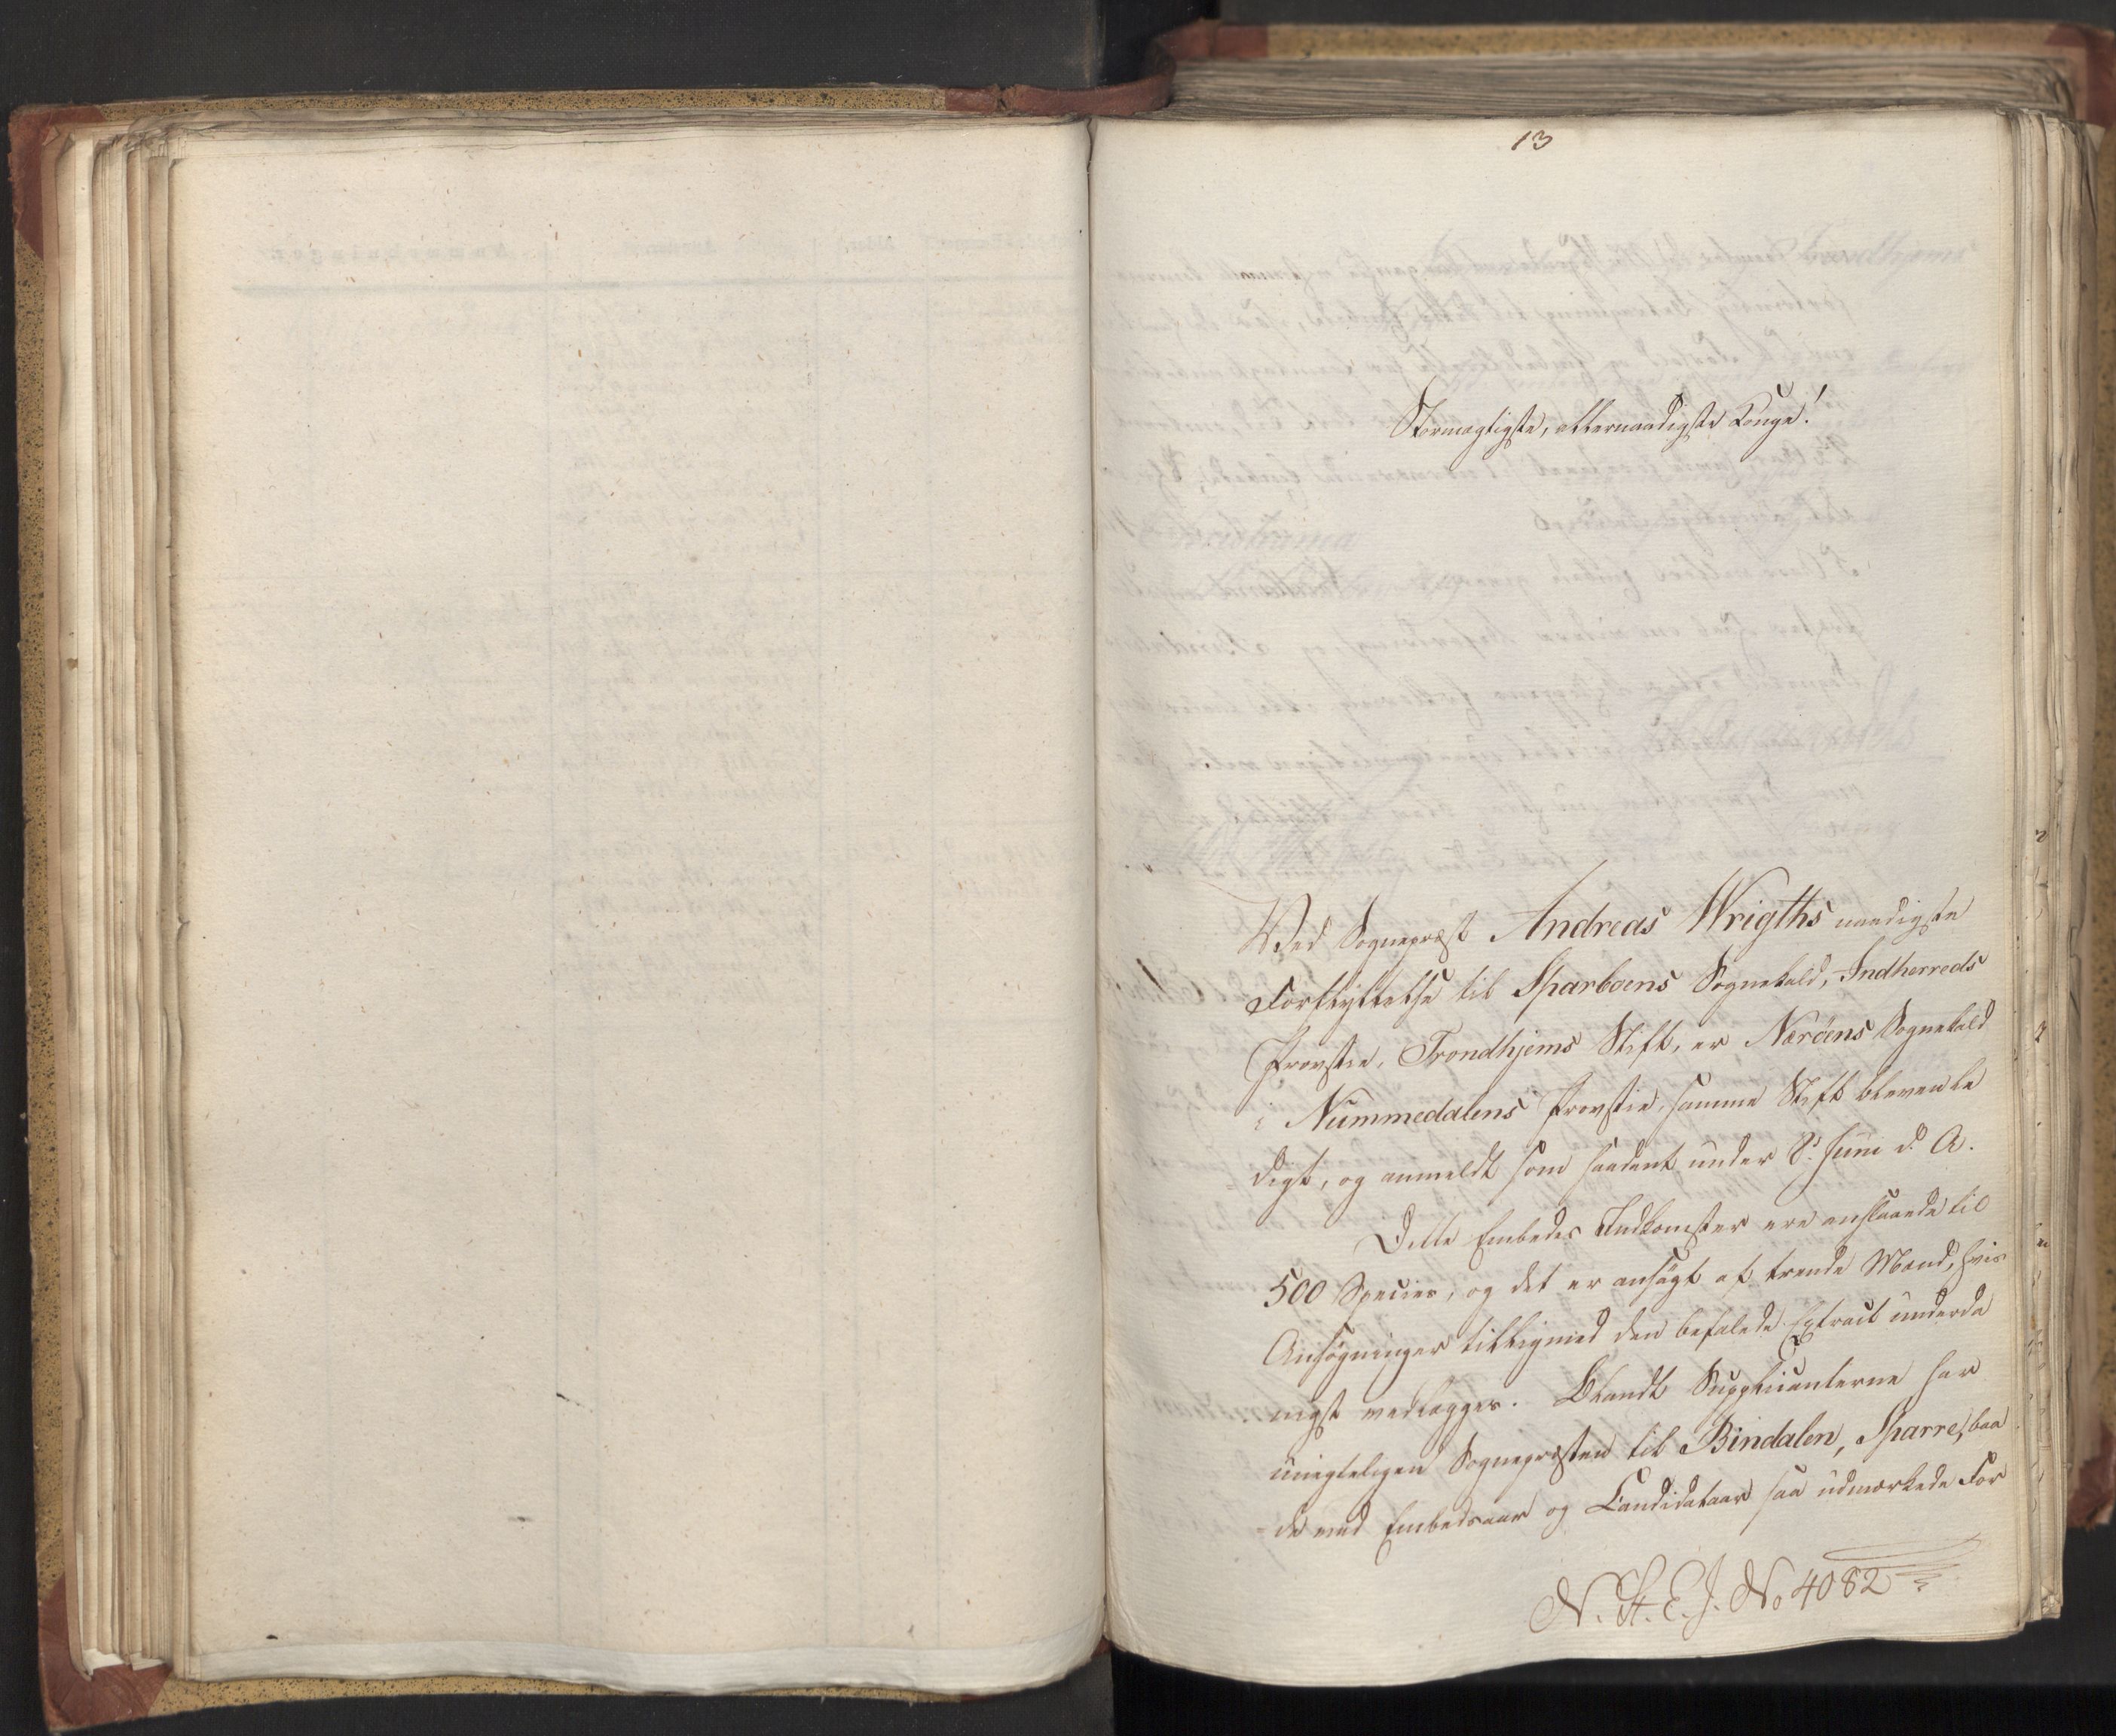 13
Stormægtigste, allernaadigste Konge!
Ved Sognepræst Andreas Wrigths naadigste
Forflyttelse til Sparboens Sognekald, Indherreds
Provstie, Trondhjems Stift, er Næröens Sognekald
i Nummedalens Provstie, samme Stift bleven le
digt, og anmeldt som saadant under 8de Juni d. A.
Dette Embedes Indkomster ere anslaaede til
500 Species, og det er ansögt af trende Mænd, hvis
Ansögninger tilligemed den befalede Extract underda
nigst vedlægges. Blandt Supplicanterne har
unegteligen Sognepræsten til Bindalen, Sparre, baa
de med Embedsaar og Candidataar saa udmærkede For
N. St. E. J. No 4082